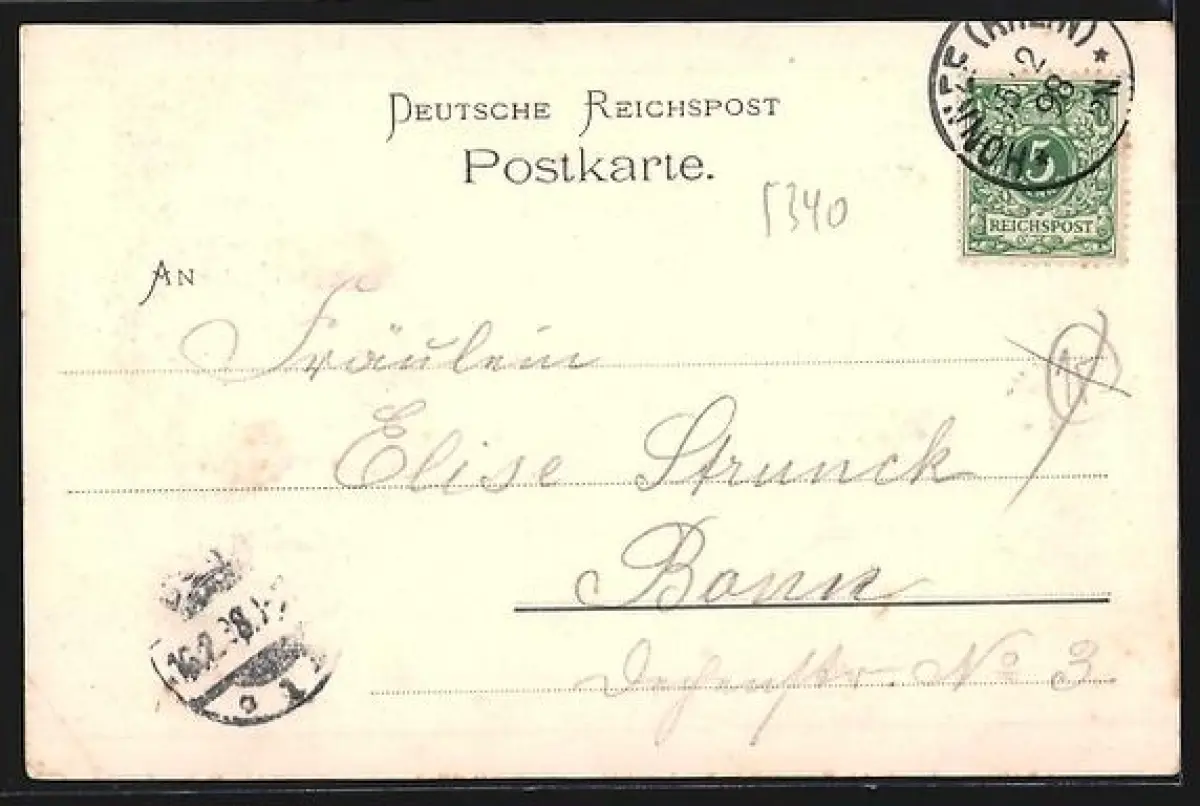 HONNEF (RHEIN) *
15 2
98
5
REICHSPOST
DEUTSCHE REICHSPOST
Postkarte.
5340
AN
Fräulein
Elise Strunck
Bonn
No 3
16.2.98